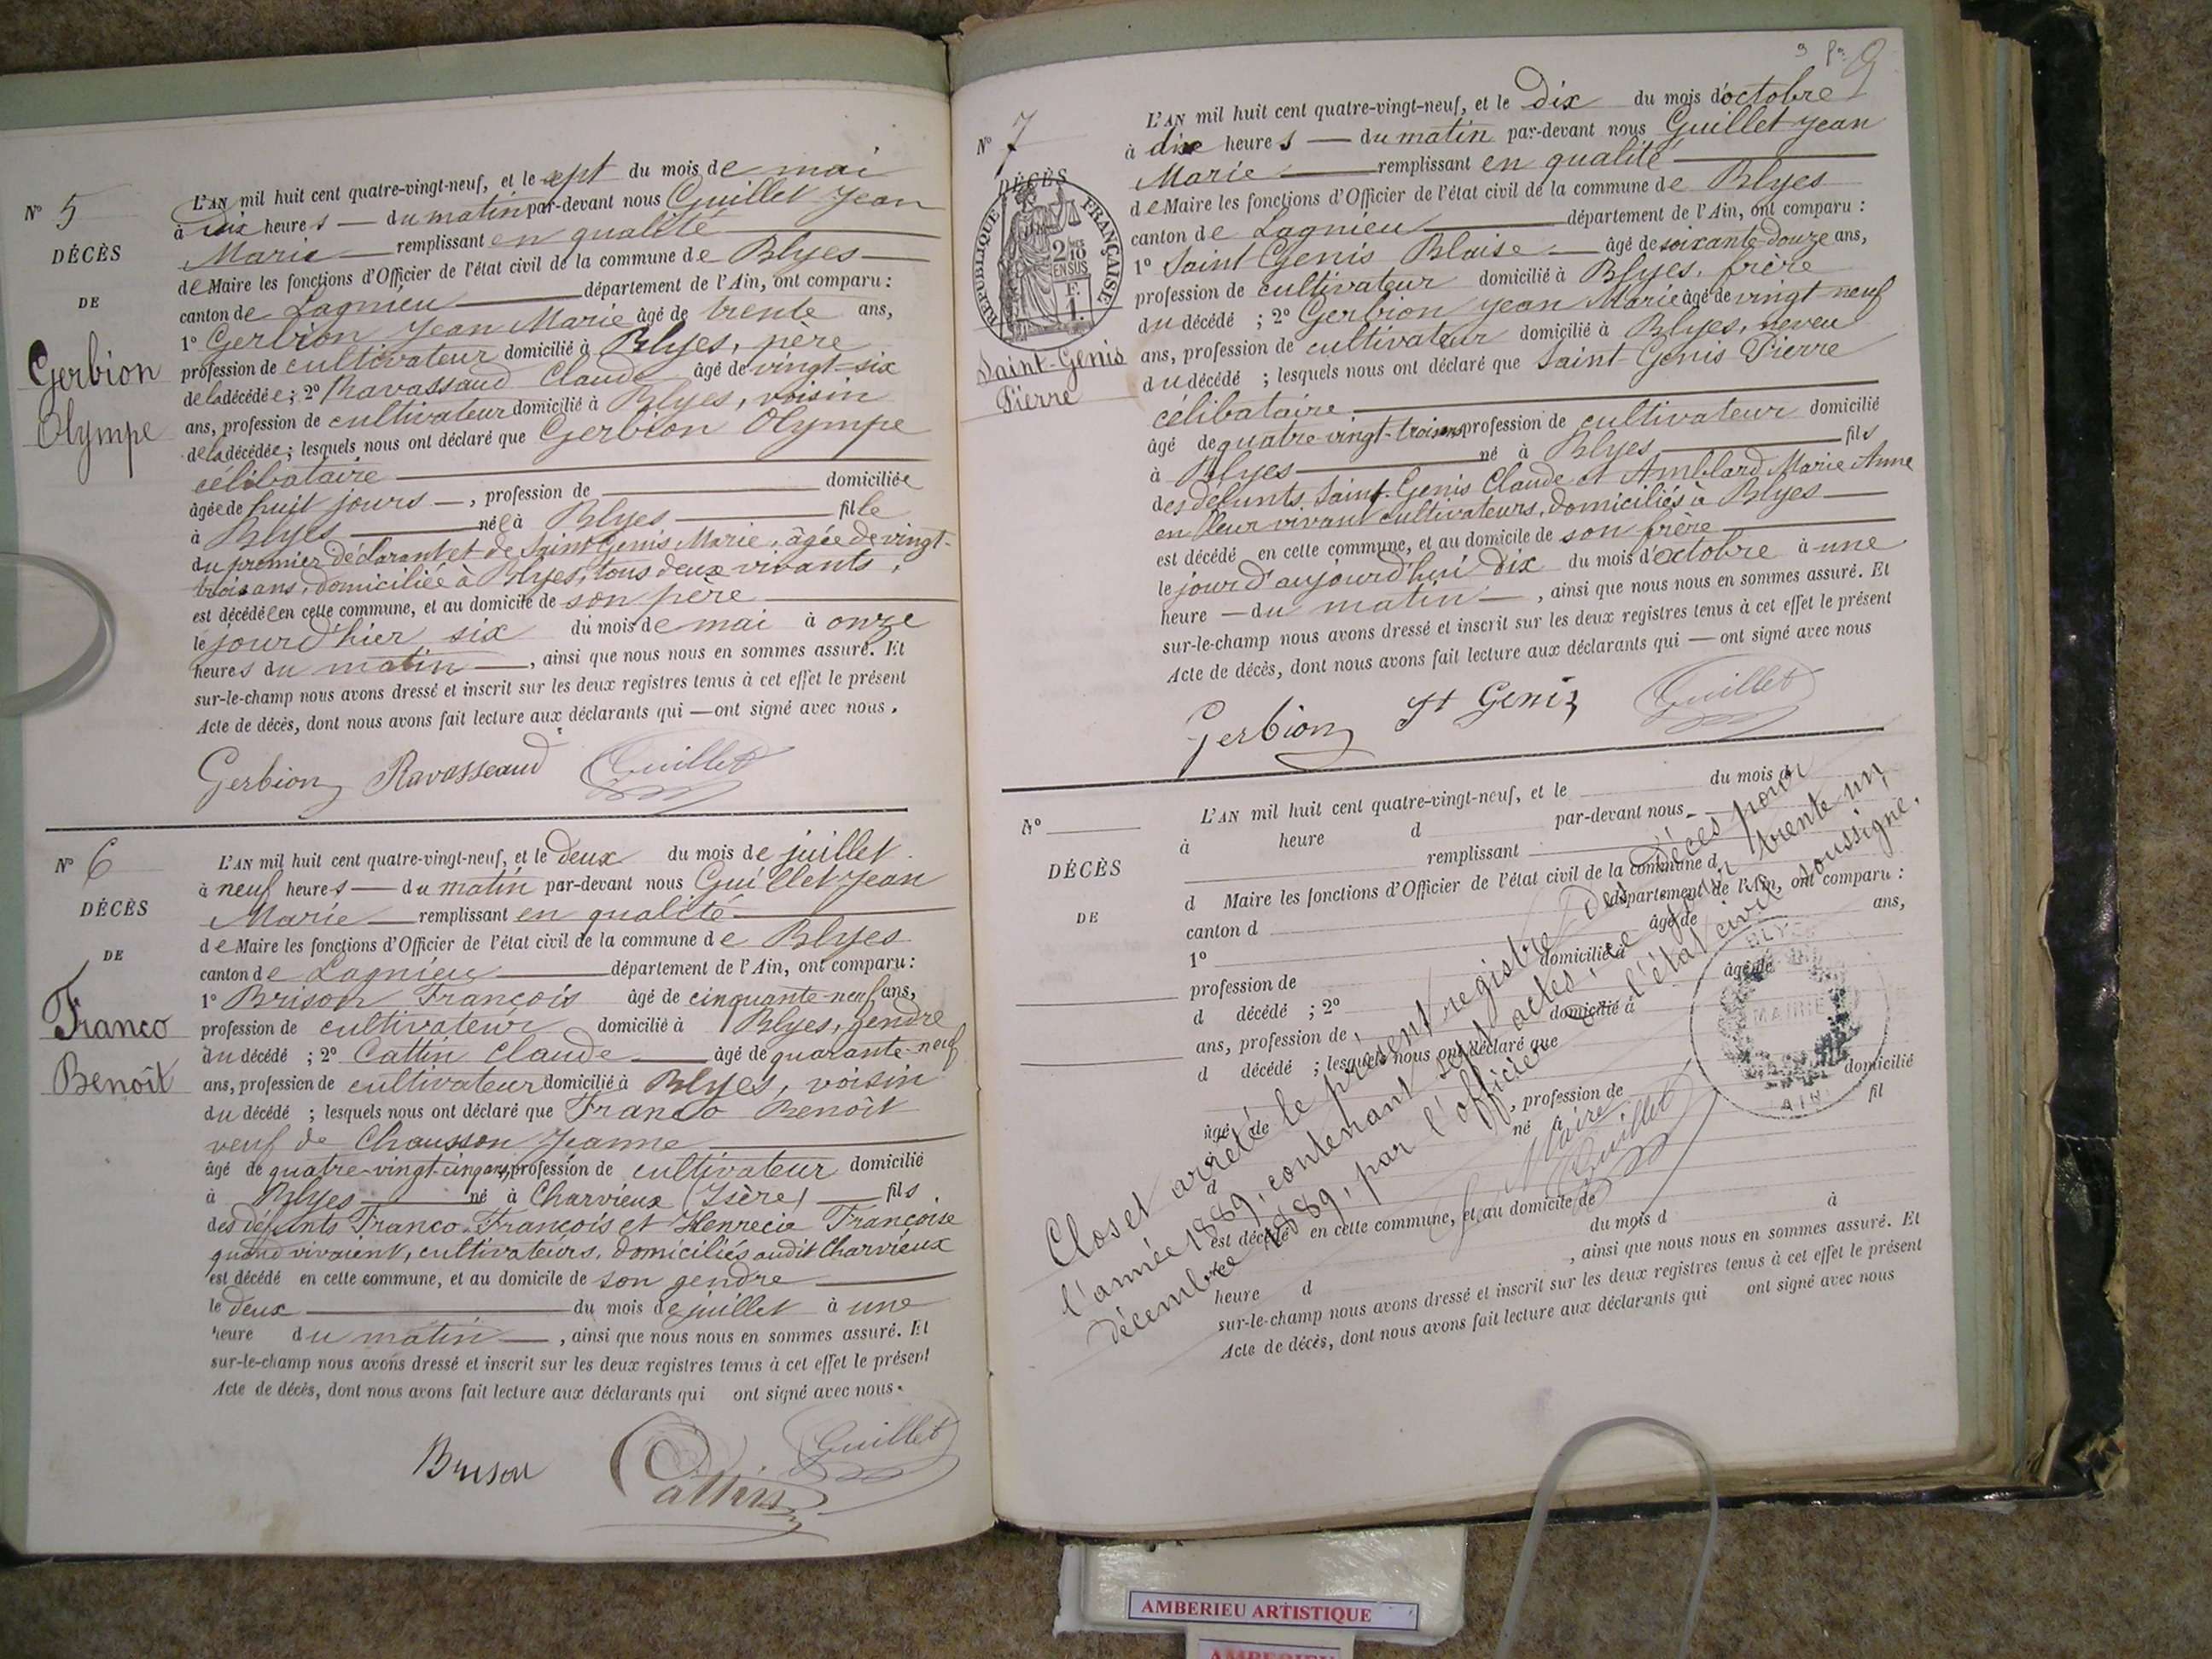 N° 5
DÉCÈS
DE
Gerbion
Olympe
L'AN mil huit cent quatre-vingt-neuf, et le sept du mois de mai
à dix heures — du matin par-devant nous Guillet Jean
Marie — remplissant en qualité
de Maire les fonctions d'Officier de l'état civil de la commune de Blyes
canton de Lagnieu — département de l'Ain, ont comparu :
1° Gerbion Jean Marie âgé de trente ans,
profession de cultivateur domicilié à Blyes, père
de la décédée ; 2° Ravassaud Claude âgé de vingt-six
ans, profession de cultivateur domicilié à Blyes, voisin
de la décédée ; lesquels nous ont déclaré que Gerbion Olympe
célibataire
âgée de huit jours —, profession de — domiciliée
à Blyes — née à Blyes — fille
du premier déclarant et de Saint Genis Marie, âgée de vingt-
trois ans, domiciliée à Blyes, tous deux vivants,
est décédée en cette commune, et au domicile de son père
le jour d'hier six du mois de mai à onze
heures du matin —, ainsi que nous nous en sommes assuré. Et
sur-le-champ nous avons dressé et inscrit sur les deux registres tenus à cet effet le présent
Acte de décès, dont nous avons fait lecture aux déclarants qui — ont signé avec nous.
Gerbion Ravasseaud Guillet
N° 6
DÉCÈS
DE
Franco
Benoît
L'AN mil huit cent quatre-vingt-neuf, et le deux du mois de juillet
à neuf heures — du matin par-devant nous Guillet Jean
Marie — remplissant en qualité
de Maire les fonctions d'Officier de l'état civil de la commune de Blyes
canton de Lagnieu — département de l'Ain, ont comparu :
1° Brison François âgé de cinquante-neuf ans,
profession de cultivateur domicilié à Blyes, gendre
du décédé ; 2° Cattin Claude — âgé de quarante-neuf
ans, profession de cultivateur domicilié à Blyes, voisin
du décédé ; lesquels nous ont déclaré que Franco Benoît
veuf de Chausson Jeanne
âgé de quatre-vingt-cinq ans, profession de cultivateur domicilié
à Blyes — né à Charvieux (Isère) — fils
des défunts Franco François et Henrecie Françoise
quand vivaient, cultivateurs, domiciliés audit Charvieux
est décédé en cette commune, et au domicile de son gendre
le deux — du mois de juillet à une
heure du matin —, ainsi que nous nous en sommes assuré. Et
sur-le-champ nous avons dressé et inscrit sur les deux registres tenus à cet effet le présent
Acte de décès, dont nous avons fait lecture aux déclarants qui ont signé avec nous.
Brison Cattin Guillet
9
N° 7
DÉCÈS
RÉPUBLIQUE FRANÇAISE
2/10
EN SUS
F.
1.
Saint-Genis
Pierre
L'AN mil huit cent quatre-vingt-neuf, et le dix du mois d'octobre
à dix heures — du matin par-devant nous Guillet Jean
Marie — remplissant en qualité
de Maire les fonctions d'Officier de l'état civil de la commune de Blyes
canton de Lagnieu — département de l'Ain, ont comparu :
1° Saint Genis Blaise — âgé de soixante-douze ans,
profession de cultivateur domicilié à Blyes, frère
du décédé ; 2° Gerbion Jean Marie âgé de vingt-neuf
ans, profession de cultivateur domicilié à Blyes, neveu
du décédé ; lesquels nous ont déclaré que Saint-Genis Pierre
célibataire
âgé de quatre-vingt-trois ans profession de cultivateur domicilié
à Blyes — né à Blyes — fils
des défunts Saint-Genis Claude et Amblard Marie Anne
en leur vivant cultivateurs, domiciliés à Blyes
est décédé en cette commune, et au domicile de son frère
le jour d'aujourd'hui dix du mois d'octobre à une
heure — du matin —, ainsi que nous nous en sommes assuré. Et
sur-le-champ nous avons dressé et inscrit sur les deux registres tenus à cet effet le présent
Acte de décès, dont nous avons fait lecture aux déclarants qui — ont signé avec nous
Gerbion St Genis Guillet
N°
DÉCÈS
DE
L'AN mil huit cent quatre-vingt-neuf, et le du mois d
à heure d par-devant nous
remplissant
d Maire les fonctions d'Officier de l'état civil de la commune d
canton d département de l'Ain, ont comparu :
1° âgé de ans,
profession de domicilié à
d décédé ; 2° âgé de
ans, profession de domicilié à
d décédé ; lesquels nous ont déclaré que
âgé de , profession de domicilié
à né à fil
est décédé en cette commune, et au domicile de
du mois d à
heure d , ainsi que nous nous en sommes assuré. Et
sur-le-champ nous avons dressé et inscrit sur les deux registres tenus à cet effet le présent
Acte de décès, dont nous avons fait lecture aux déclarants qui ont signé avec nous
Clos et arrêté le présent registre des décès pour
l'année 1889, contenant sept actes, ce jour trente un
décembre 1889, par l'officier de l'état civil soussigné.
Le Maire
Guillet
BLYES
MAIRIE
AIN
AMBERIEU ARTISTIQUE
AMBERIEU